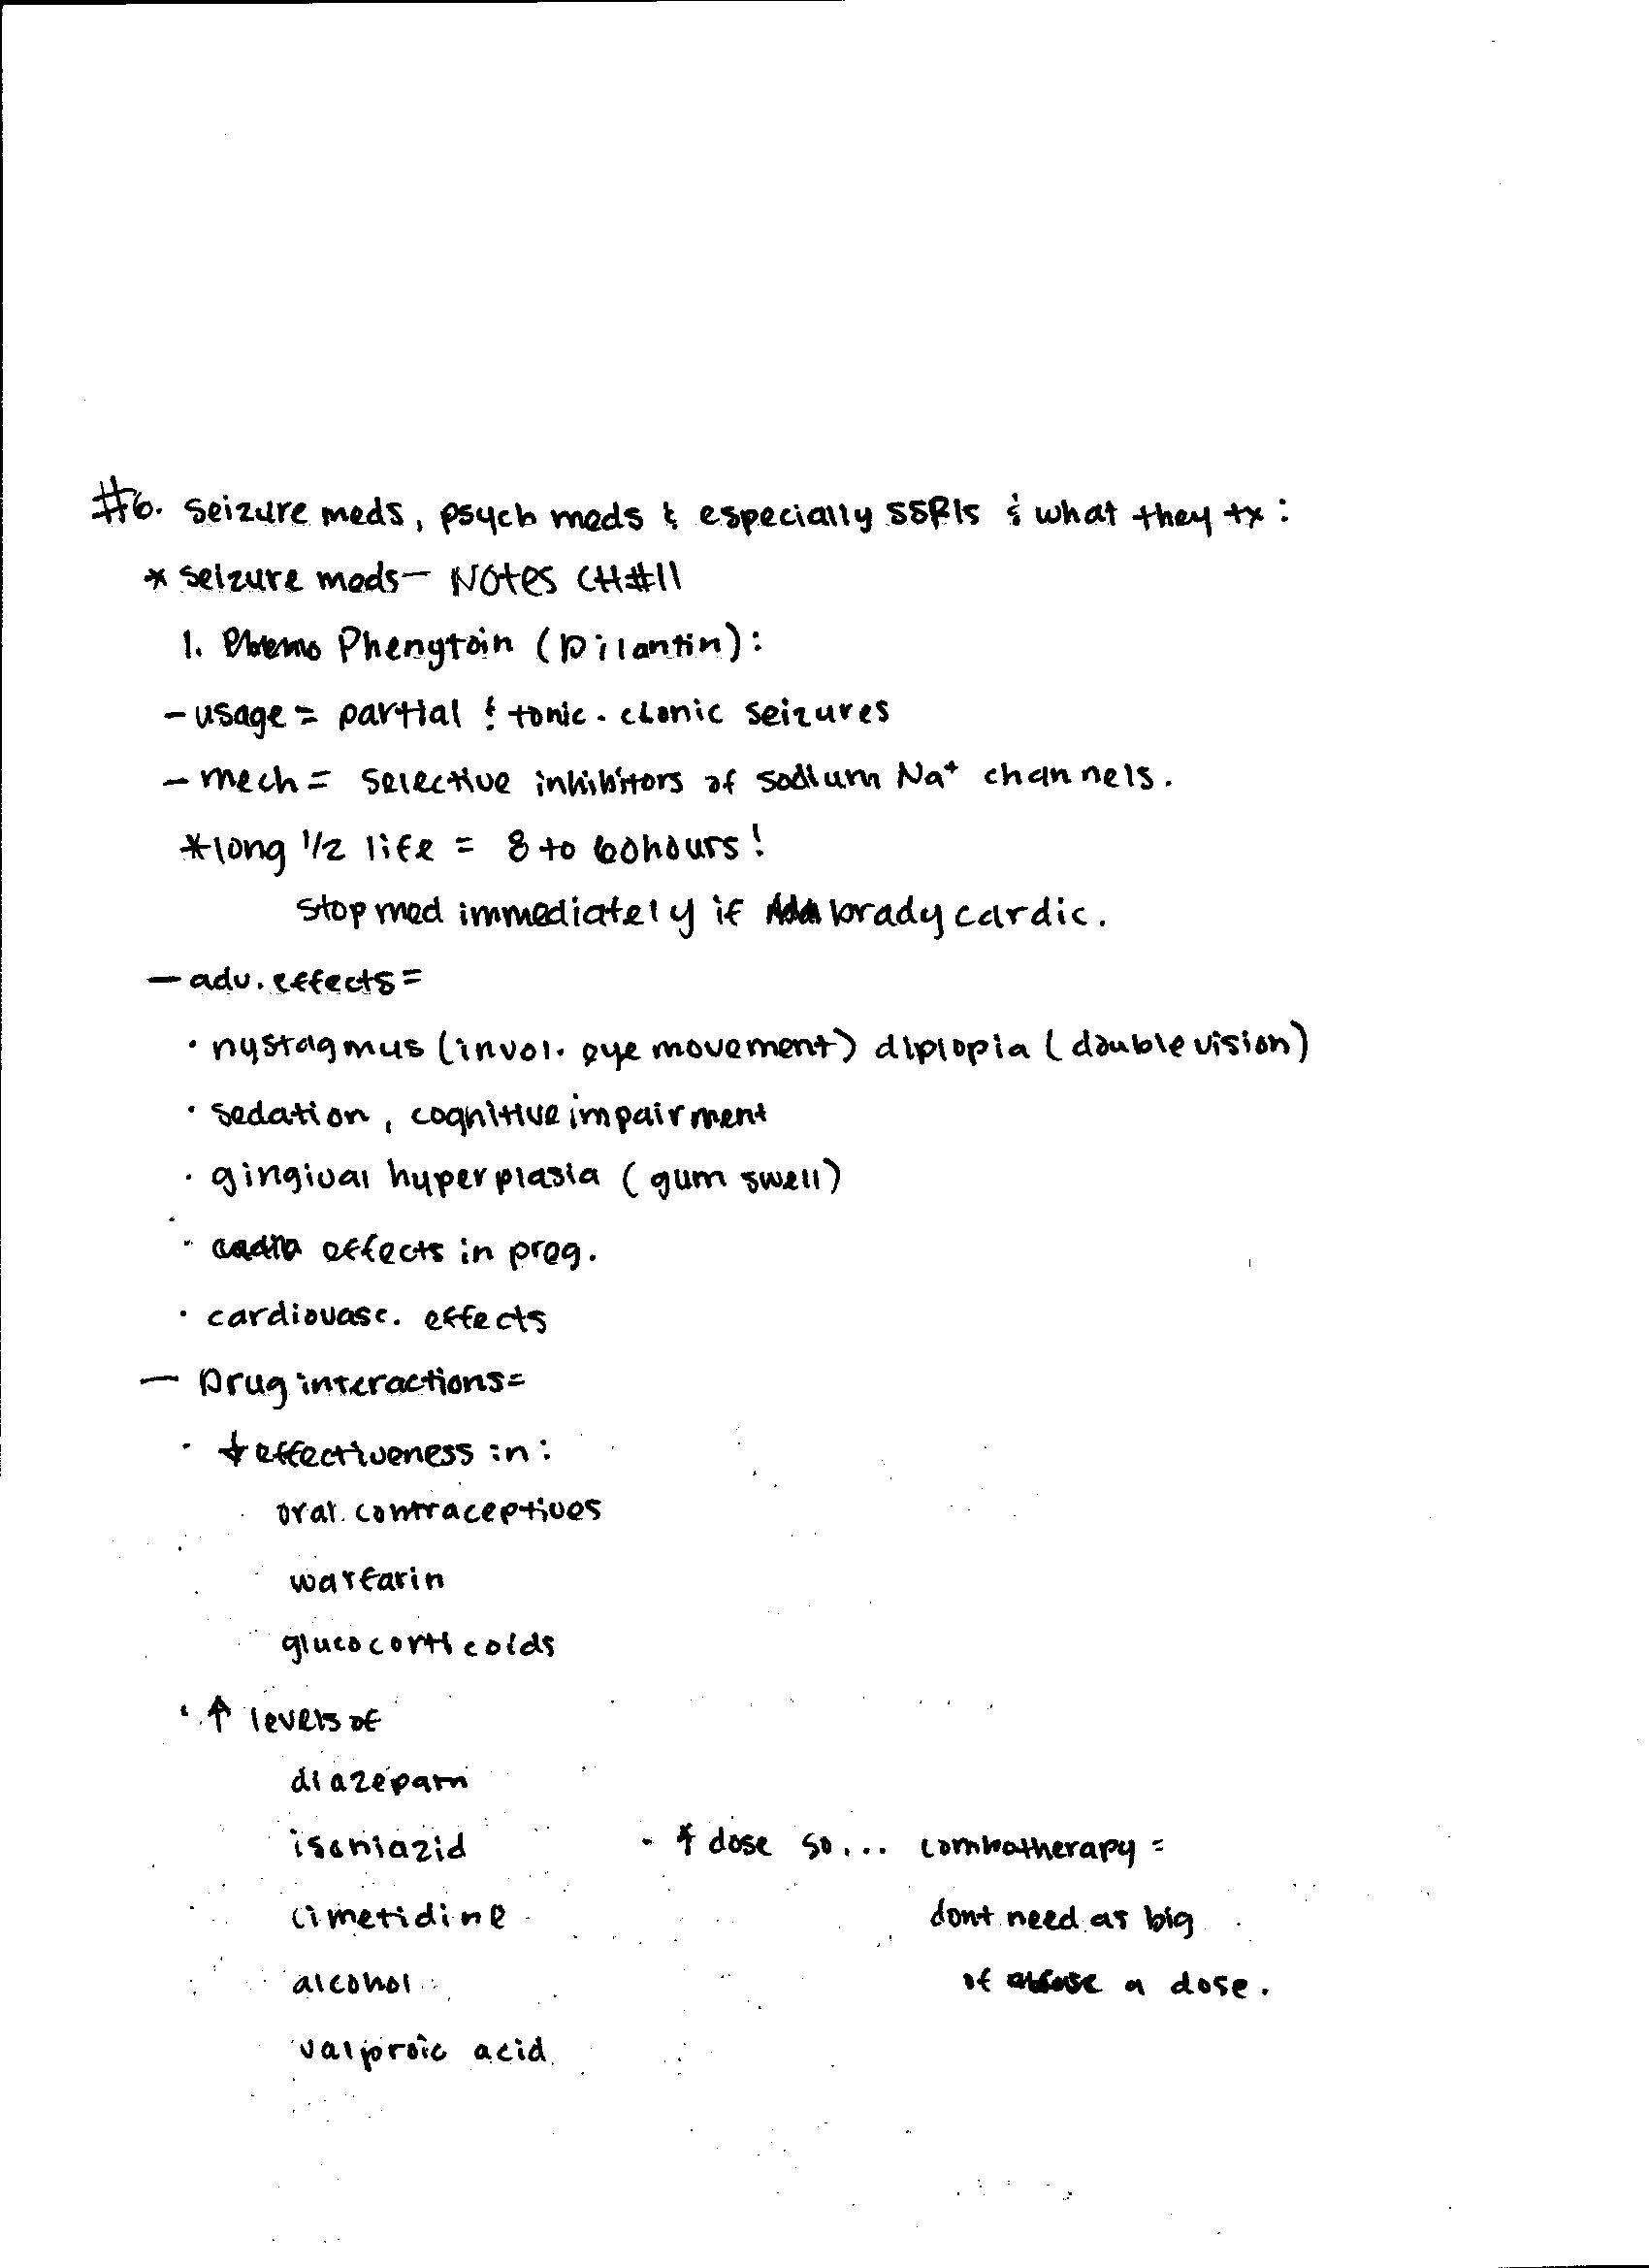 #6. seizure meds, psych meds & especially SSRIs & what they tx:
* seizure meds— NOtes CH#11
1. Phenytoin (Dilantin):
- usage = partial & tonic-clonic seizures
- mech = selective inhibitors of sodium Na⁺ channels.
*long 1/2 life = 8 to 60 hours!
stop med immediately if bradycardic.
- adv. effects=
• nystagmus (invol. eye movement) diplopia (double vision)
• sedation, cognitive impairment
• gingival hyperplasia (gum swell)
• effects in preg.
• cardiovasc. effects
- Drug interactions=
• ↓ effectiveness in:
oral contraceptives
warfarin
glucocorticoids
• ↑ levels of
diazepam
isoniazid - ↑ dose so... combotherapy =
cimetidine dont need as big
alcohol of a dose.
valproic acid